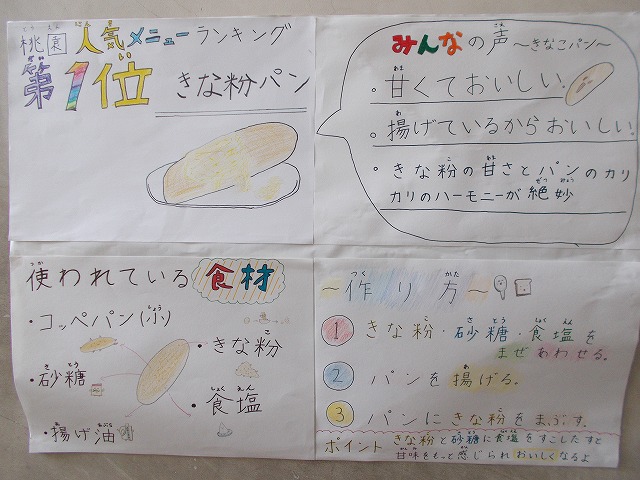 桃園 人気メニューランキング
第1位 きな粉パン
みんなの声～きなこパン～
・甘くておいしい。
・揚げているからおいしい。
・きな粉の甘さとパンのカリ
カリのハーモニーが絶妙
使われている食材
・コッペパン(小)
・きな粉
・砂糖
・食塩
・揚げ油
～作り方～
1 きな粉・砂糖・食塩を
まぜあわせる。
2 パンを揚げる。
3 パンにきな粉をまぶす。
ポイント きな粉と砂糖に食塩をすこしたすと
甘味をもっと感じられおいしくなるよ